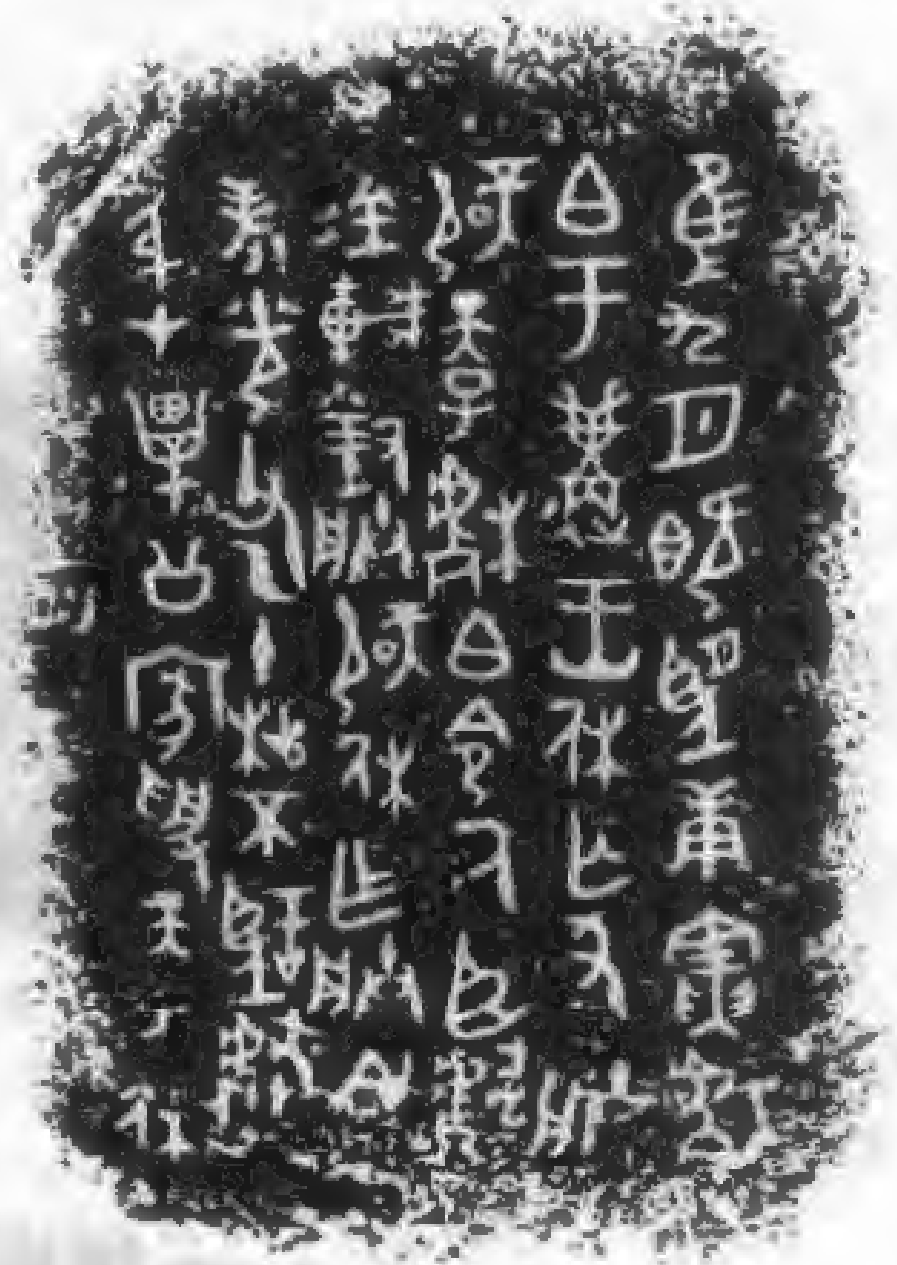 隹九月既望庚寅楷
白于遘王休亡尤朕
辟天子楷白令氒臣獻
金車對朕辟休乍朕文
考光父乙十枻不獻
身才畢公家受天子休